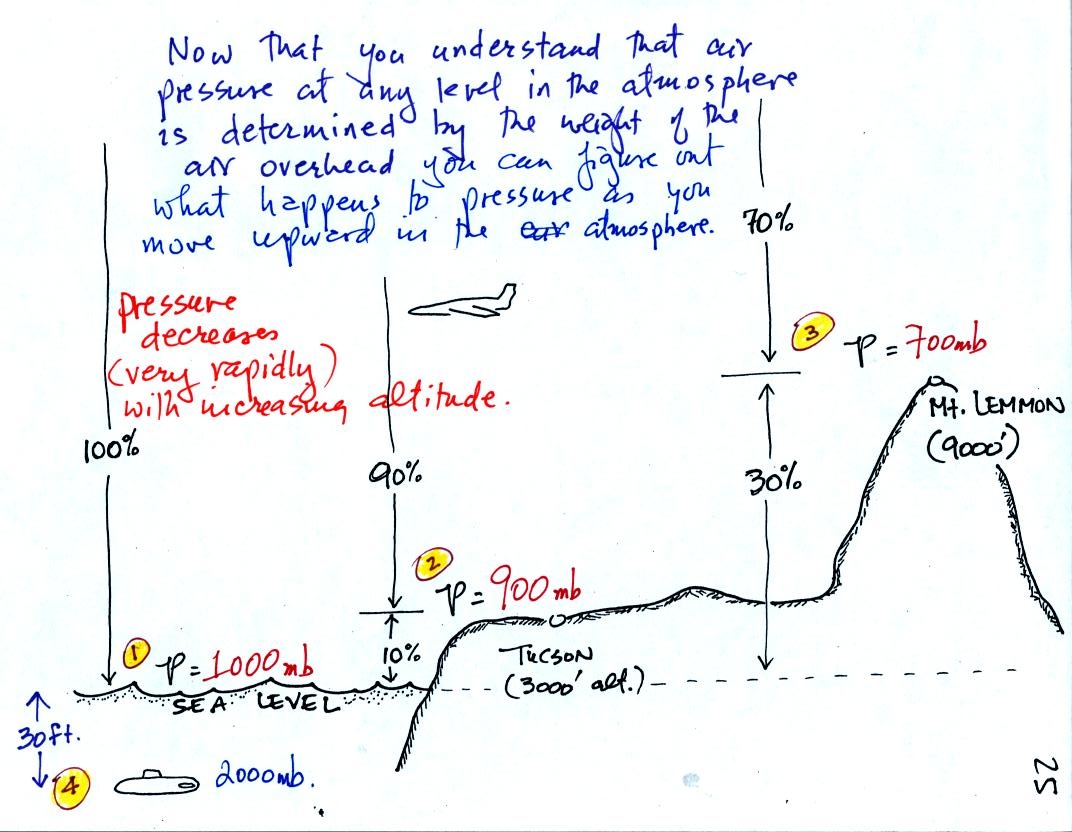 Now that you understand that air
pressure at any level in the atmosphere
is determined by the weight of the
air overhead you can figure out
what happens to pressure as you
move upward in the air atmosphere.
70%
pressure
decreases
(very rapidly)
with increasing altitude.
3 P = 700mb
Mt. LEMMON
(9000')
100%
90%
30%
2 P = 900mb
10%
TUCSON
(3000' alt.)
1 P = 1000mb
SEA LEVEL
30ft.
4 2000mb.
25